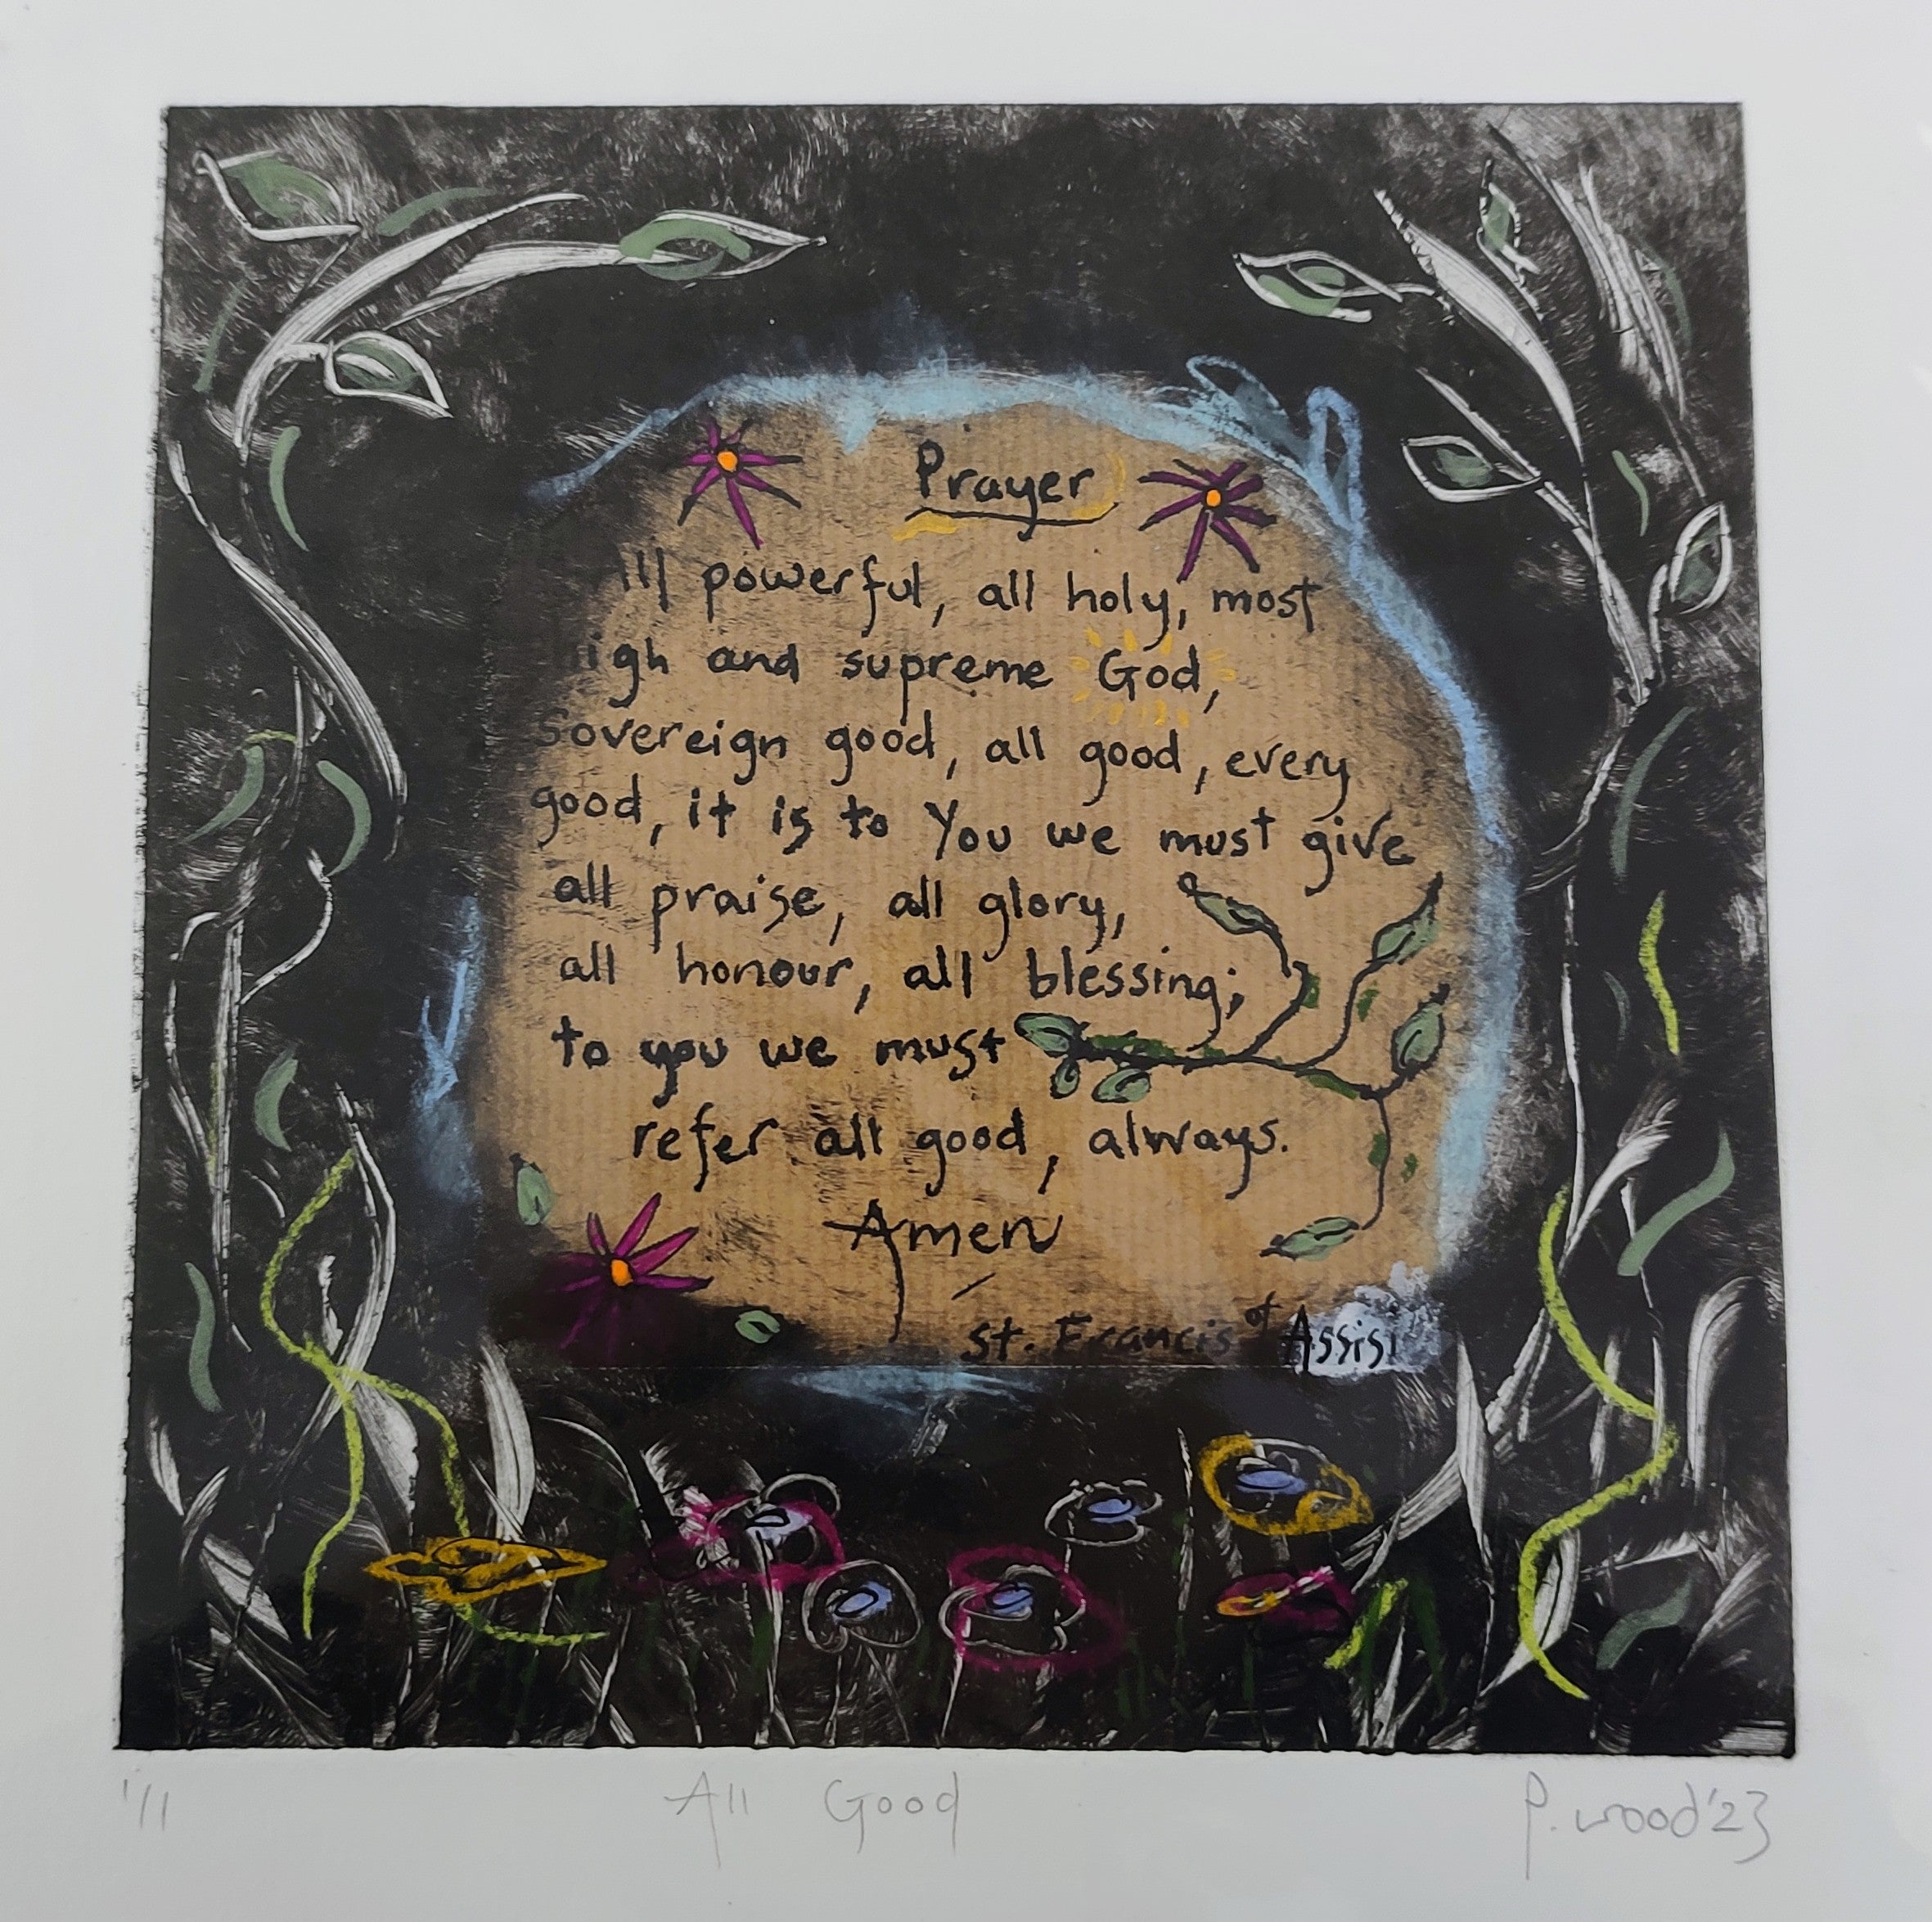 Prayer
All powerful, all holy, most
high and supreme God,
Sovereign good, all good, every
good, it is to You we must give
all praise, all glory,
all honour, all blessing;
to you we must
refer all good, always.
Amen
St. Francis of Assisi
1/1
All Good
P. Wood '23